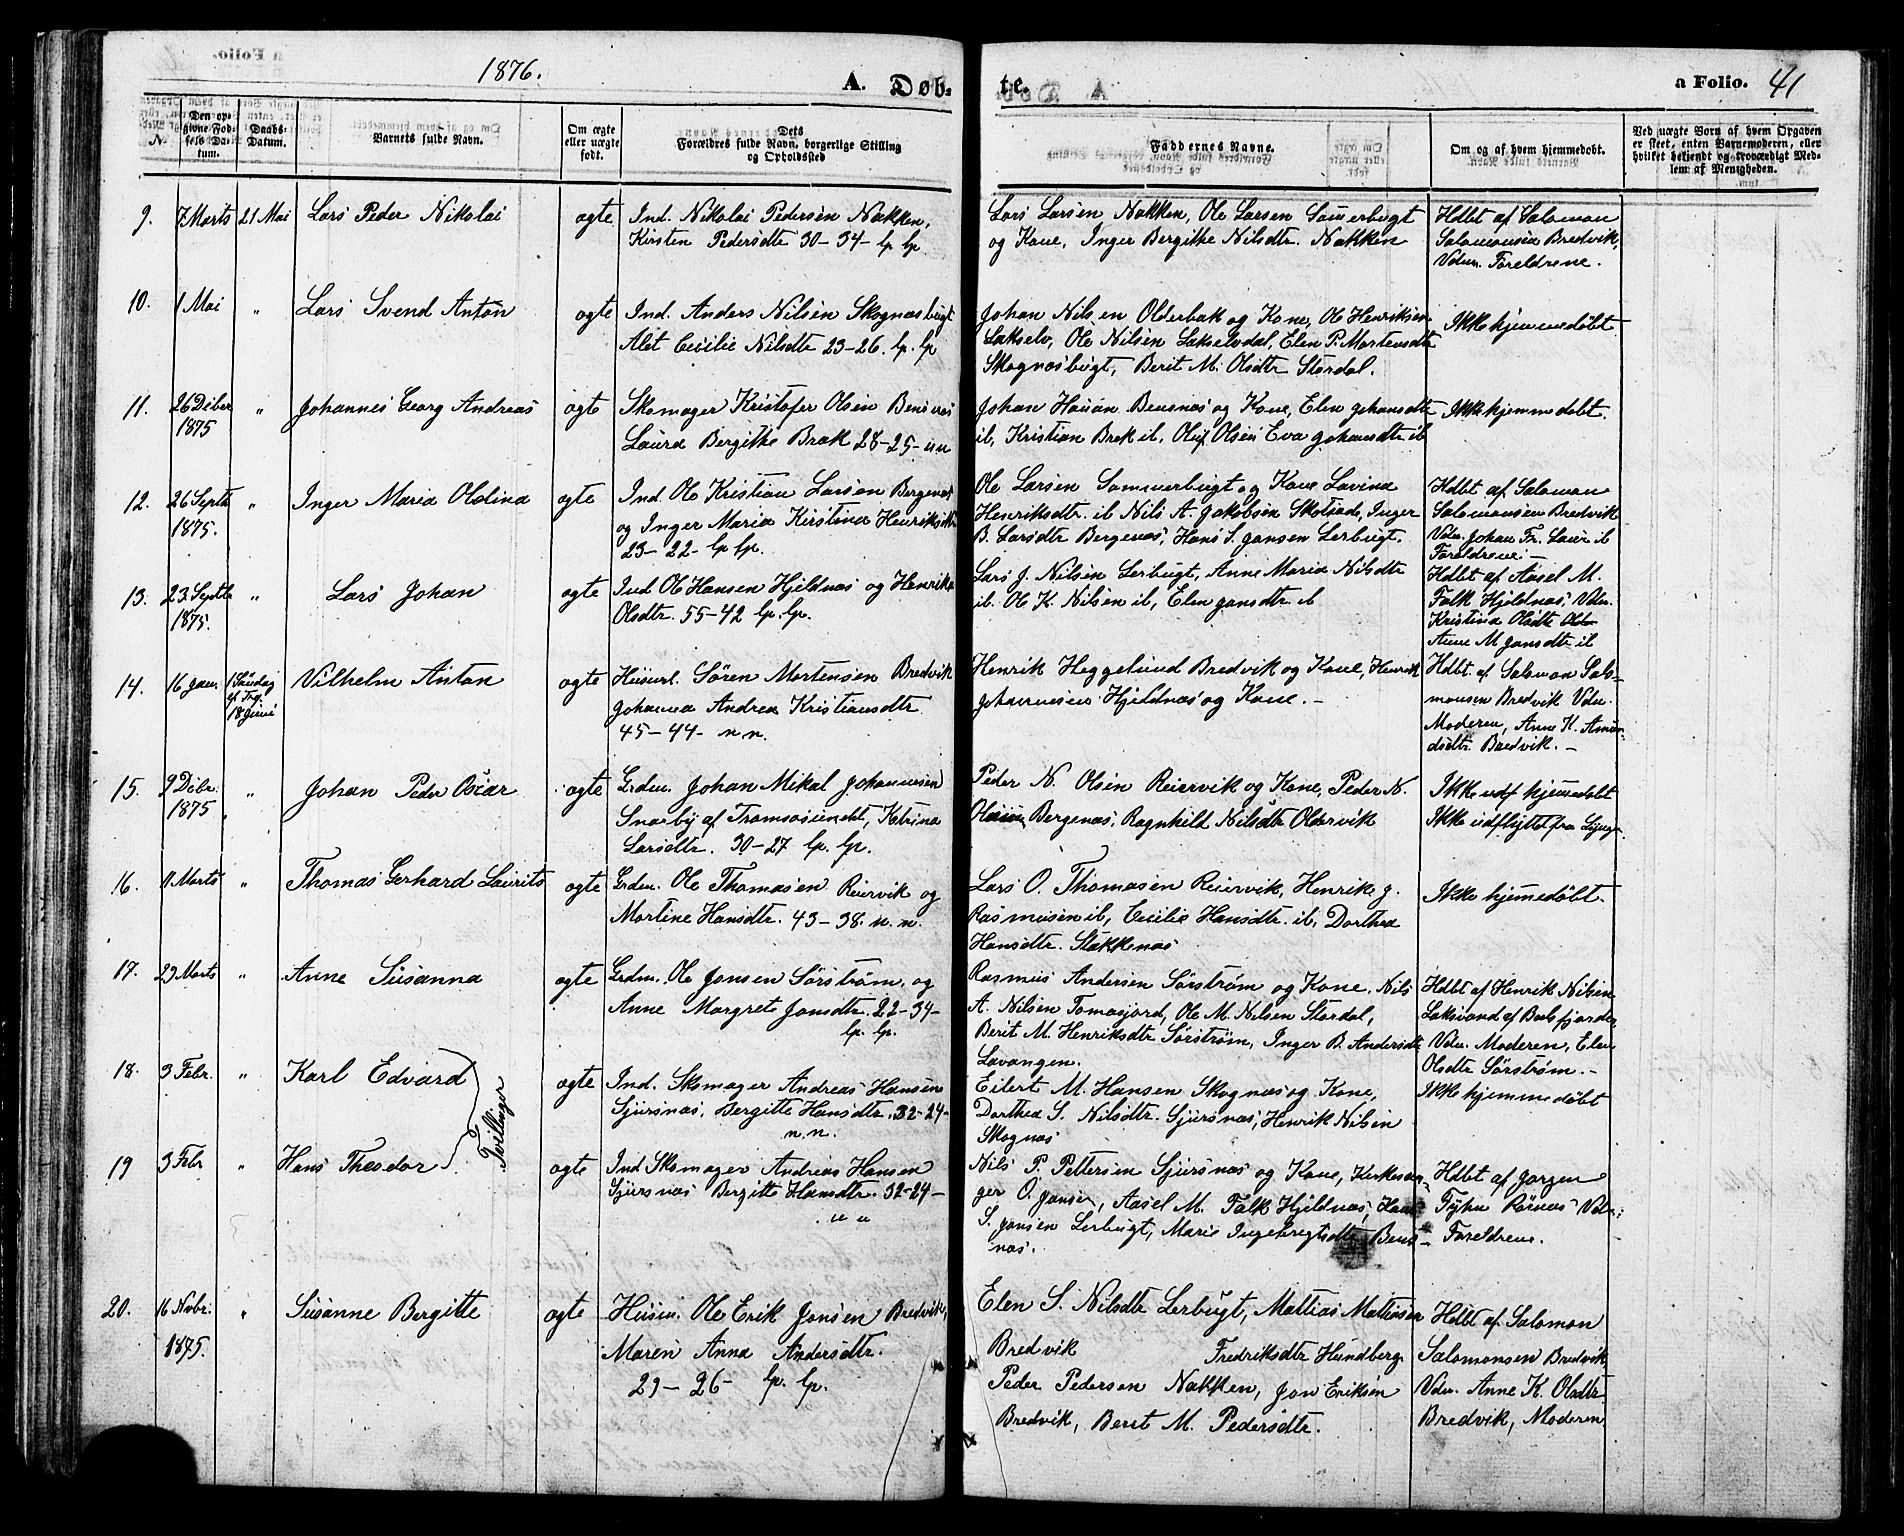 1876.
A. Døb-
te.
a Folio. 41
N.
Den op-
givne Fød-
sels Da-
tum.
Daabs-
Datum.
Barnets fulde Navn.
Om ægte
eller uægte
født.
Dets
Forældres fulde Navn, borgerlige Stilling
og Opholdssted
Faddernes Navne.
Om og af hvem hjemmedøbt.
Ved uægte Børn af hvem Opgaven
er skeet, enten Barnemoderen, eller
hvilket bekjendt og troværdigt Med-
lem af Menigheden.
9. 7 Marts 21 Mai Lars Peder Nikolai ægte
Ind. Nikolai Pedersen Nakken,
Kirsten Pedersdtr 30-34- lp lp.
Lars Larsen Nakken, Ole Larsen Somerbugt
og Kone, Inger Bergithe Nilsdtr. Nakken
Hdbt af Salomon
Salomonsen Bredvik,
Vidn. Foreldrene.
10. 1 Mai " Lars Svend Anton ægte
Ind. Anders Nilsen Skognæsbugt
Alet Cecilie Nilsdtr 23-26. lp. lp
Johan Nilsen Olderbak og Kone, Ole Henriksen
Lakselv, Ole Nilsen Lakselvdal, Elen P. Mortensdtr
Skognæsbugt, Berit M. Olsdtr Stordal.
Ikke hjemmedøbt
11. 26 Dcber " Johannes Georg Andreas ægte
1875
Skomager Kristofer Olsen Bensnæs
Laura Bergithe Brak 28-25- nn
Johan Hasan Bensnæs og Kone, Elen Johansdtr
ib, Kristian Brek ib, Oluf Olsen Eva Johansdtr ib
Ikke hjemmedøbt.
12. 26 Septb " Inger Maria Oldina ægte
1875.
Ind. Ole Kristian Larsen Bergenæs
og Inger Maria Kirstina Henriksdtr
23-22- lp lp.
Ole Larsen Sommerbugt og Kone Lavina
Henriksdtr. ib Nils A. Jakobsen Skotsæde, Inger
B. Larsdtr Bergenæs, Hans S. Jansen Lerbugt.
Hdbt af Salomon
Salomonsen Bredvik
Vidn. Johan Fr. Laur ib
Foreldrene.-
13. 23 Septb " Lars Johan ægte
1875.
Ind Ole Hansen Hjeldnæs og Henrika
Olsdtr. 55-42 lp. lp.
Lars J. Nilsen Lerbugt, Anne Maria Nilsdtr
ib. Ole K. Nilsen ib, Elen Jansdtr ib
Hdbt af Aasel M.
Falk Hjeldnæs, Vidn.
Kristina Olsdtr
Anne M Jansdtr ib
14. 16 Jan. 1 Søndag
af Trg.
18 Juni
Vilhelm Anton ægte
Husml. Søren Mortensen Bredvik
Johanna Andrea Kristiansdtr
45-44- n n.
Henrik Heggelund Bredvik og Kone, Henrik
Johannesen Hjeldnæs og Kone.-
Hdbt. af Salomon Salo-
monsen Bredvik Vidn.
Moderen, Anne K. Amun-
dsdtr Bredvik.-
15. 9 Dcbr. " Johan Peder Oskar ægte
1875
Grdm. Johan Mikal Johannesen
Snarby af Tromsøsundet, Katrina
Larsdtr. 30-27 lp. lp.
Peder N. Olsen Reiervik og Kone, Peder N.
Olsen Bergenæs, Ragnhild Nilsdtr Oldervik
Ikke udf hjemmedøbt
Ikke udflyttet fra Lynge.
16. 11 Marts " Thomas Gerhard Laurits ægte
Grdm. Ole Thomasen Reiervik og
Martine Hansdtr. 43-38. n. n.
Lars O. Thomasen Reiervik, Henrik J.
Rasmusen ib, Cecilie Hansdtr. ib, Dorthea
Hansdtr. Stakkenæs
Ikke hjemmedøbt.
17. 29 Marts " Anne Susanna ægte
Grdm. Ole Jonsen Sørstrøm. og
Anne Margret Jonsdtr. 22-34-
lp. lp.
Rasmus Andersen Sørstrøm og Kone. Nils
A. Nilsen Tomasjord, Ole M. Nilsen Stordal,
Berit M. Henriksdtr Sørstrøm, Inger B. Andersdtr
Lavangen.
Hdbt af Henrik Nilsen
Laksvand af Balsfjorden,
Vidn. Moderen, Elen
Olsdtr Sørstrøm.-
18. 3 Febr. " Karl Edvard ægte
Tvillinger
Ind. Skomager Andreas Hansen
Sjursnæs, Bergitte Hansdtr. 32-24-
n. n.
Eilert M. Hansen Skognæs og Kone,
Dorthea S. Nilsdtr. Sjursnæs, Henrik Nilsen
Skognæs
Ikke hjemmedøbt
19 3 Febr " Hans Theodor ægte
Ind Skomager Andreas Hansen
Sjursnæs Bergitte Hansdtr. 32-24-
" "
Nils P. Pettersen Sjursnæs og Kone, Kirkesan-
ger O. Jansen, Aasel M. Falk Hjeldnæs, Hans
S. Jansen Lerbugt, Marie Ingebrigtsdtr Bens-
næs.
Hdbt af Jørgen
Fyhn Rørnæs Vidn:
Foreldrene.
20. 16 Novbr. " Susanne Bergitte ægte
1875.
Husm. Ole Erik Jonsen Bredvik,
Maren Anna Andersdtr.
29-26- lp. lp.
Elen S. Nilsdtr Lerbugt, Mattias Mattiasen
Bredvik Fredriksdtr Hundberg
Peder Pedersen Nakken, Jon Eriksen
Bredvik, Berit M. Pedersdtr.
Hdbt af Salomon
Salomonsen Bredvik
Vidn. Anne K. Olsdtr
Bredvik, Moderen